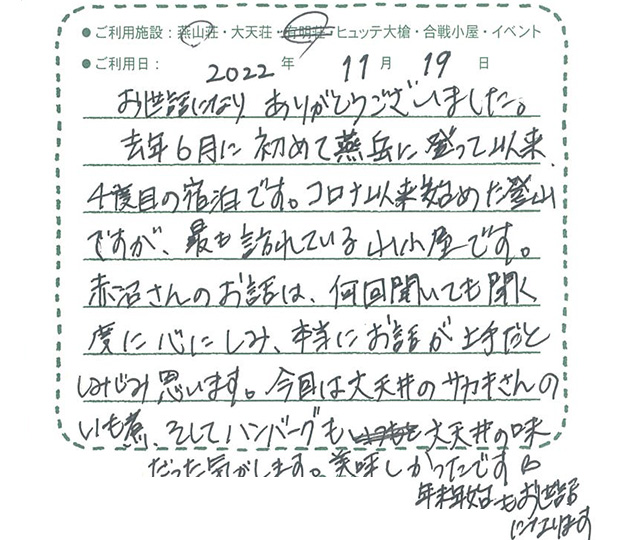 ●ご利用施設：燕山荘・大天荘・有明荘・ヒュッテ大槍・合戦小屋・イベント
●ご利用日： 2022 年 11 月 19 日
お世話になり ありがとうございました。
去年6月に初めて燕岳に登って以来、
4度目の宿泊です。コロナ以来始めた登山
ですが、最も訪れている山小屋です。
赤沼さんのお話は、何回聞いても聞く
度に心にしみ、本当にお話が上手だと
しみじみ思います。今回は大天井のサカキさんの
いも煮、そしてハンバーグも 大天井の味
だった気がします。美味しかったです
年末年始もお世話
になります